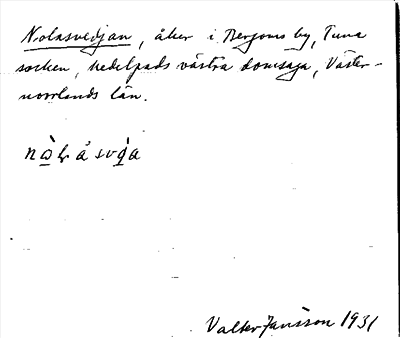 Nolasvedjan, åker i Bergoms by, Tuna
socken, Medelpads västra domsaga, Väster-
norrlands län.
Valter Jansson 1931